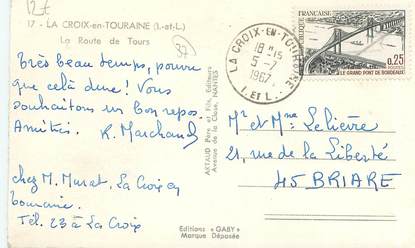 12f
17 - LA CROIX-en-TOURAINE (I.-et-L.)
La Route de Tours
37
Très beau temps, pourvu
que cela dure ! Vous
souhaitons un bon repos.
Amitiés. R. Marchand
chez M. Murat. La Croix en
Touraine.
Tél. 23 à La Croix
ARTAUD Père et Fils, Editeurs
Avenue de la Close, NANTES
Editions "GABY"
Marque Déposée
LA CROIX-EN-TOURAINE
18H15
5-7
1967
I. ET L.
REPUBLIQUE FRANÇAISE
0,25
LE GRAND PONT DE BORDEAUX
Mr et Mme Lelièvre
21, rue de la Liberté
45 BRIARE